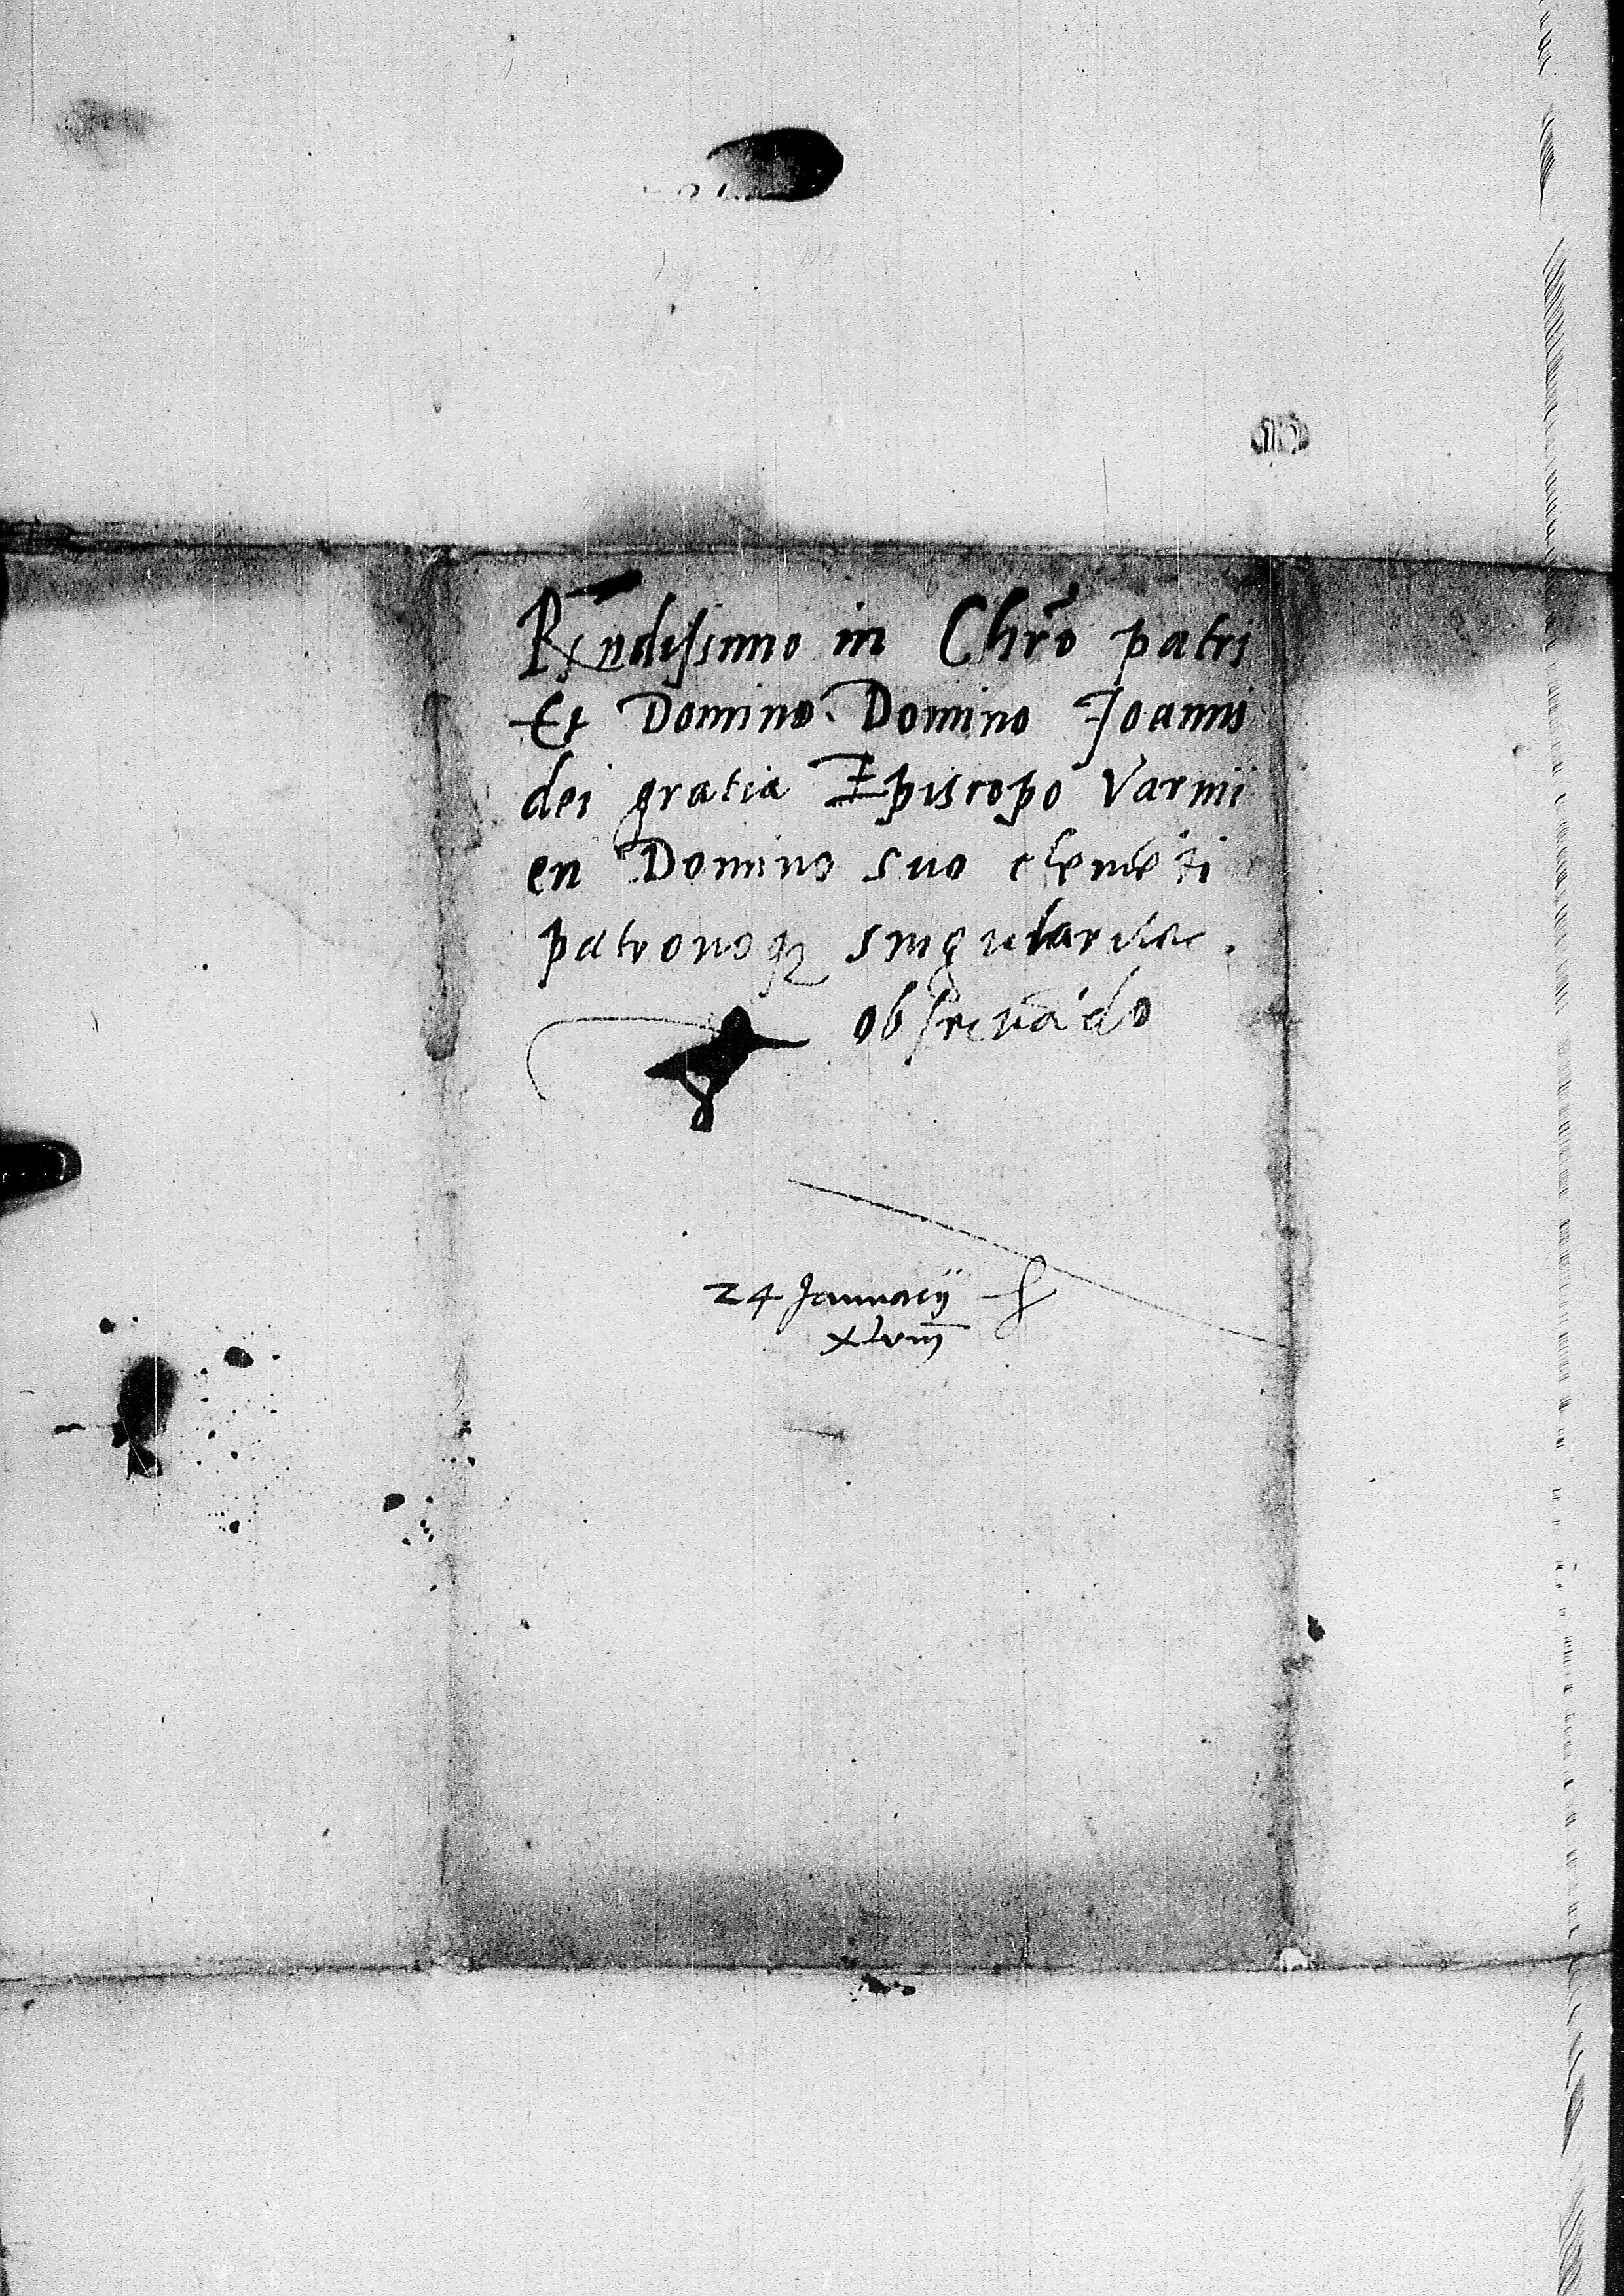 Rͤndissimo in Chrō patri
Et Domino Domino Joanni
dei gratia Episcopo Varmi
en Domino suo clemēti
patronoqȝ singulariter
observādo
24 Januarij
xlviij